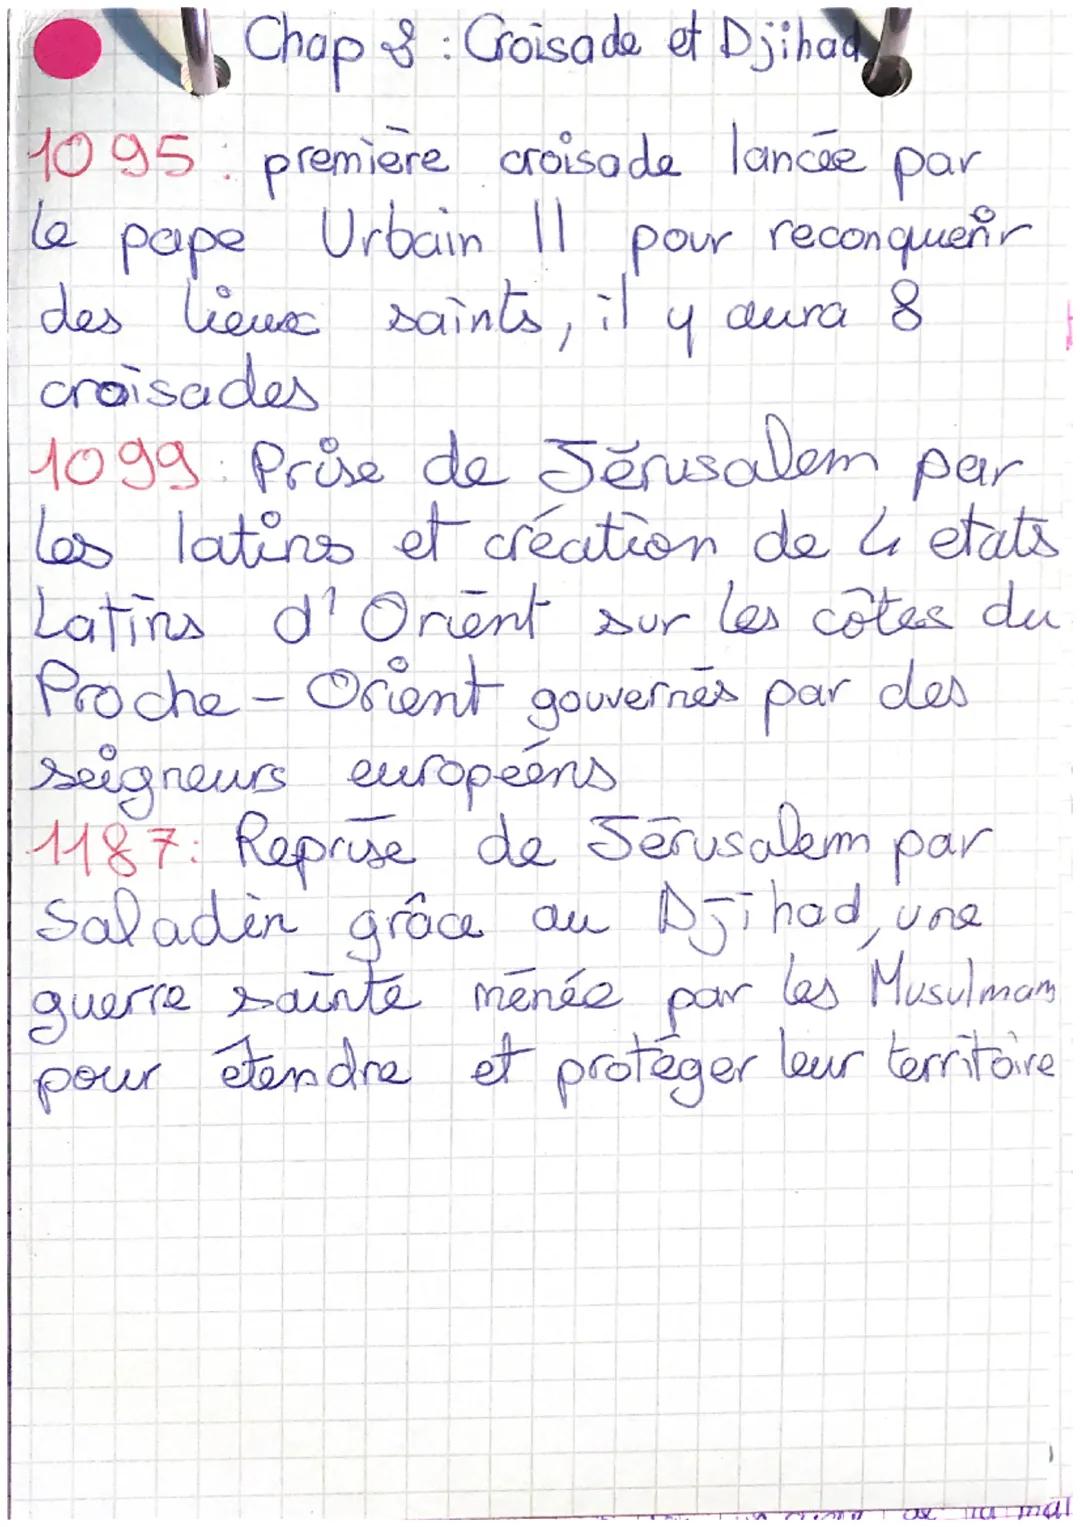 Chap 8 : Croisade et Djihad
1095 : première croisade lancée par
le pape Urbain II pour reconquerir
des lieux saints, il y aura 8
croisades
1099 : Prise de Jérusalem par
les latins et création de 4 etats
Latins d'Orient sur les côtes du
Proche-Orient gouvernés par des
seigneurs européens
1187 : Reprise de Jérusalem par
Saladin grâce au Djihad, une
guerre sainte ménée par les Musulmans
pour étendre et protéger leur territoire